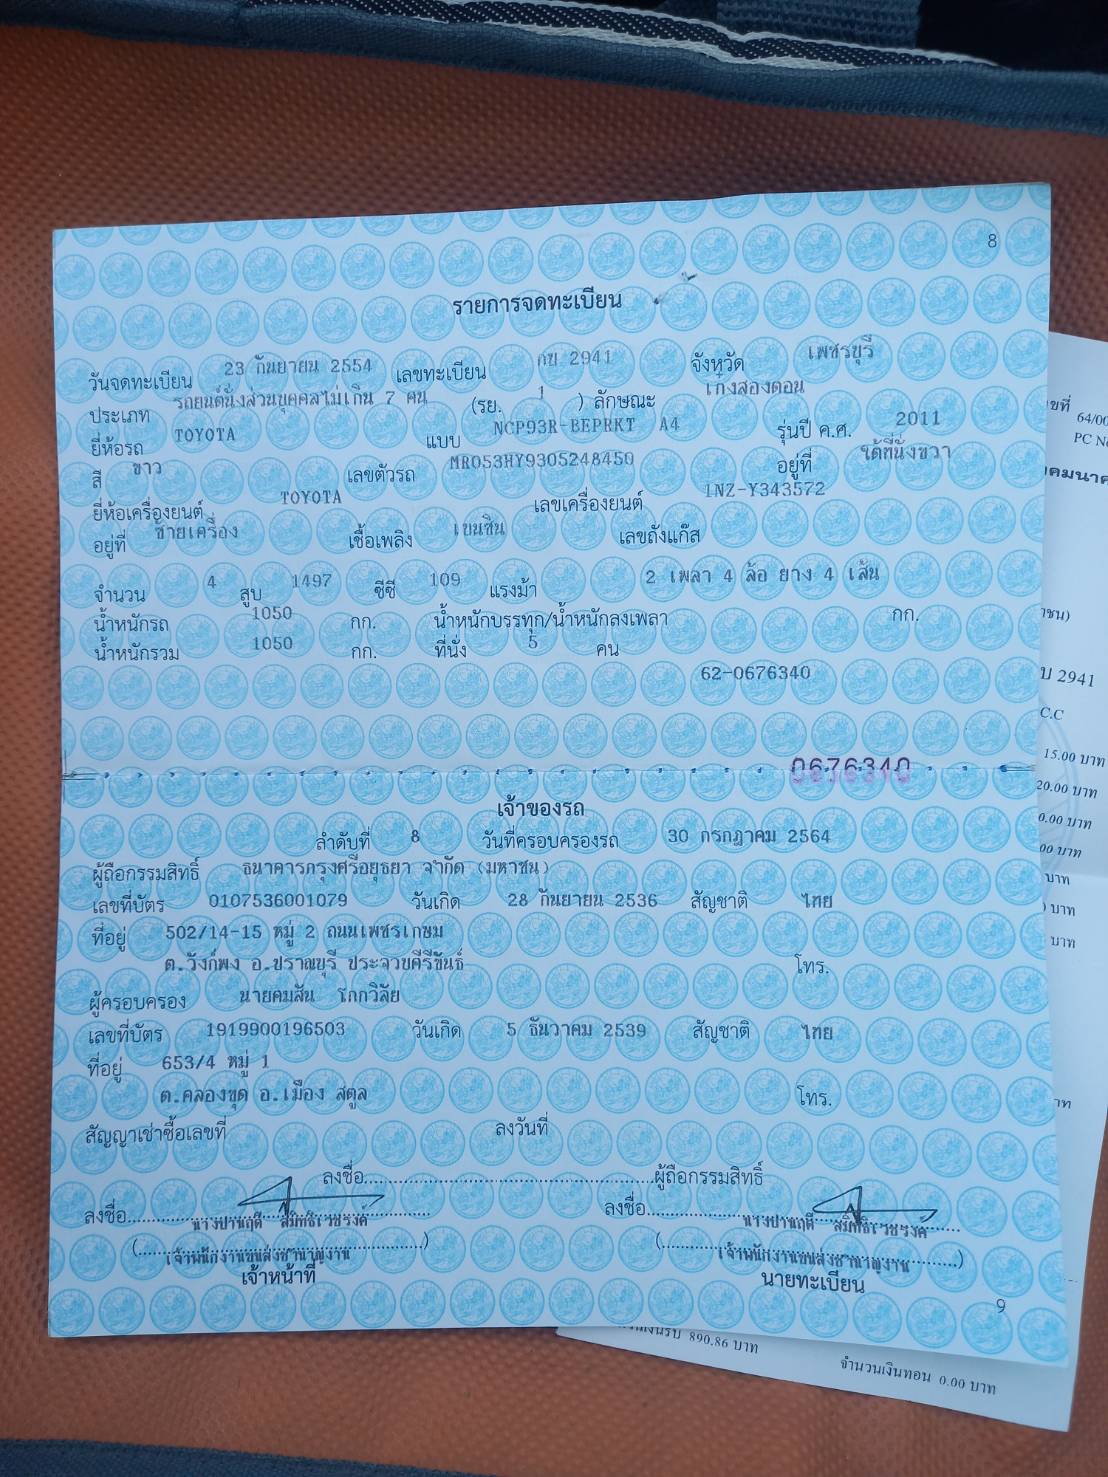 8
รายการจดทะเบียน
วันจดทะเบียน 23 กันยายน 2554 เลขทะเบียน กข 2941 จังหวัด เพชรบุรี
ประเภท รถยนต์นั่งส่วนบุคคลไม่เกิน 7 คน (รย. 1 ) ลักษณะ เก๋งสองตอน
ยี่ห้อรถ TOYOTA แบบ NCP93R-BEPRKT A4 รุ่นปี ค.ศ. 2011
สี ขาว เลขตัวรถ MR053HY9305248450 อยู่ที่ ใต้ที่นั่งขวา
ยี่ห้อเครื่องยนต์ TOYOTA เลขเครื่องยนต์ 1NZ-Y343572
อยู่ที่ ซ้ายเครื่อง เชื้อเพลิง เบนซิน เลขถังแก๊ส
จำนวน 4 สูบ 1497 ซีซี 109 แรงม้า 2 เพลา 4 ล้อ ยาง 4 เส้น
น้ำหนักรถ 1050 กก. น้ำหนักบรรทุก/น้ำหนักลงเพลา กก.
น้ำหนักรวม 1050 กก. ที่นั่ง 5 คน
62-0676340
0676340
เจ้าของรถ
ลำดับที่ 8 วันที่ครอบครองรถ 30 กรกฎาคม 2564
ผู้ถือกรรมสิทธิ์ ธนาคารกรุงศรีอยุธยา จำกัด (มหาชน)
เลขที่บัตร 0107536001079 วันเกิด 28 กันยายน 2536 สัญชาติ ไทย
ที่อยู่ 502/14-15 หมู่ 2 ถนนเพชรเกษม
ต.วังก์พง อ.ปราณบุรี ประจวบคีรีขันธ์ โทร.
ผู้ครอบครอง นายคมสัน โกกวิลัย
เลขที่บัตร 1919900196503 วันเกิด 5 ธันวาคม 2539 สัญชาติ ไทย
ที่อยู่ 653/4 หมู่ 1
ต.คลองขุด อ.เมือง สตูล โทร.
สัญญาเช่าซื้อเลขที่ ลงวันที่
ลงชื่อ ผู้ถือกรรมสิทธิ์
ลงชื่อ ลงชื่อ
(เจ้าพนักงานขนส่งชำนาญงาน) (เจ้าพนักงานขนส่งชำนาญงาน)
เจ้าหน้าที่ นายทะเบียน
9
ขที่ 64/00
PC
คมนาค
าชน)
2941
C.C
15.00 บาท
20.00 บาท
0.00 บาท
00 บาท
บาท
บาท
บาท
890.86 บาท
จำนวนเงินทอน 0.00 บาท